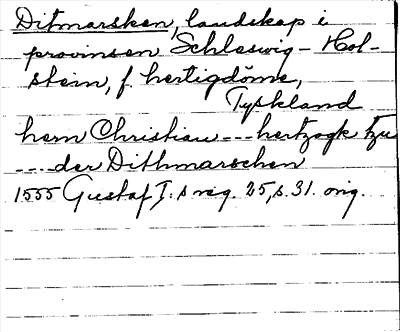 Ditmarsken, landskap i
provinsen Schleswig-Hol-
stein, f. hertigdöme,
Tyskland
hern Christian --- hertzogk tzu
---- der Dithmarschen
1555 Gustaf I:s reg. 25, s. 31. orig.